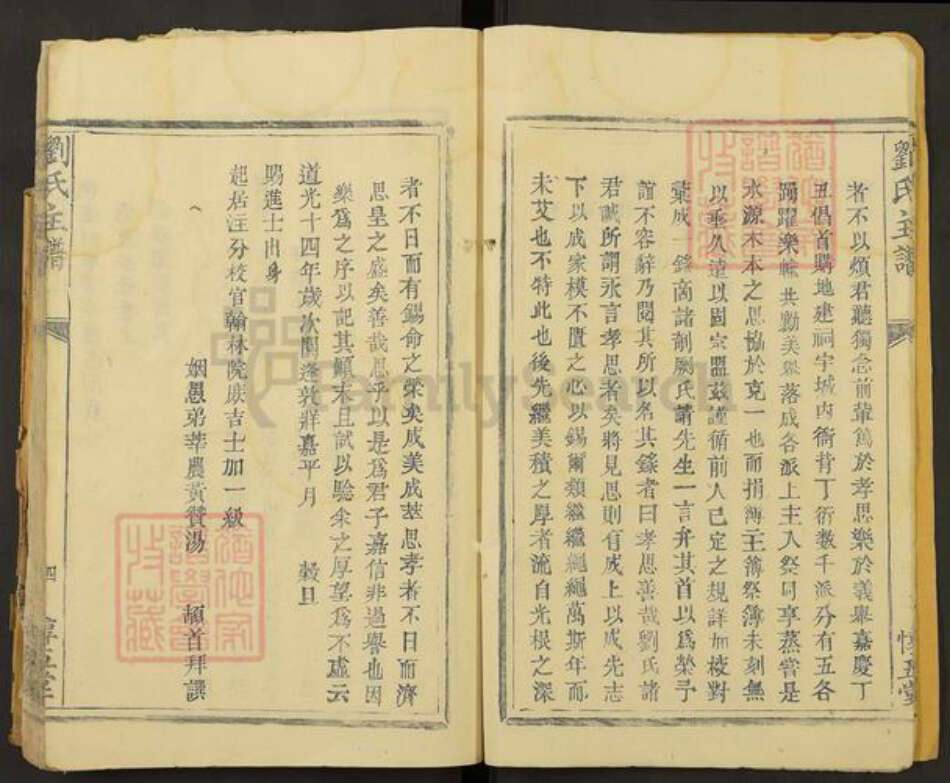 劉氏主譜
者不以煩君聽獨念前輩篤於孝思樂於義舉嘉慶丁
丑倡首購地建祠宇城内衙背丁衍数千派分有五各
踴躍樂輸共勷美舉落成各派上主入祭同享蒸嘗是
水源木本之思協於克一也而捐簿主簿祭簿未刻無
以垂久遠以固宗盟茲謹循前人已定之規詳加校對
彙成一錄商諸剞劂氏請先生一言弁其首以爲榮予
誼不容辭乃閱其所以名其錄者曰孝思善哉劉氏諸
君誠所謂永言孝思者矣將見思則有成上以成先志
下以成家模不匱之心以錫爾類繼繼繩繩萬斯年而
未艾也不特此也後先繼美積之厚者流自光根之深
者不日而有錫命之榮矣成美成茲思孝者不日而濟
思皇之盛矣善哉思乎以是爲君子嘉信非過譽也因
樂爲之序以記其顛末且試以驗余之厚望爲不虛云
道光十四年歲次閼逢敦牂嘉平月 穀旦
賜進士出身
起居注分校官翰林院庶吉士加一級
姻愚弟莘農黃贊湯 頓首拜譔
劉氏主譜
四